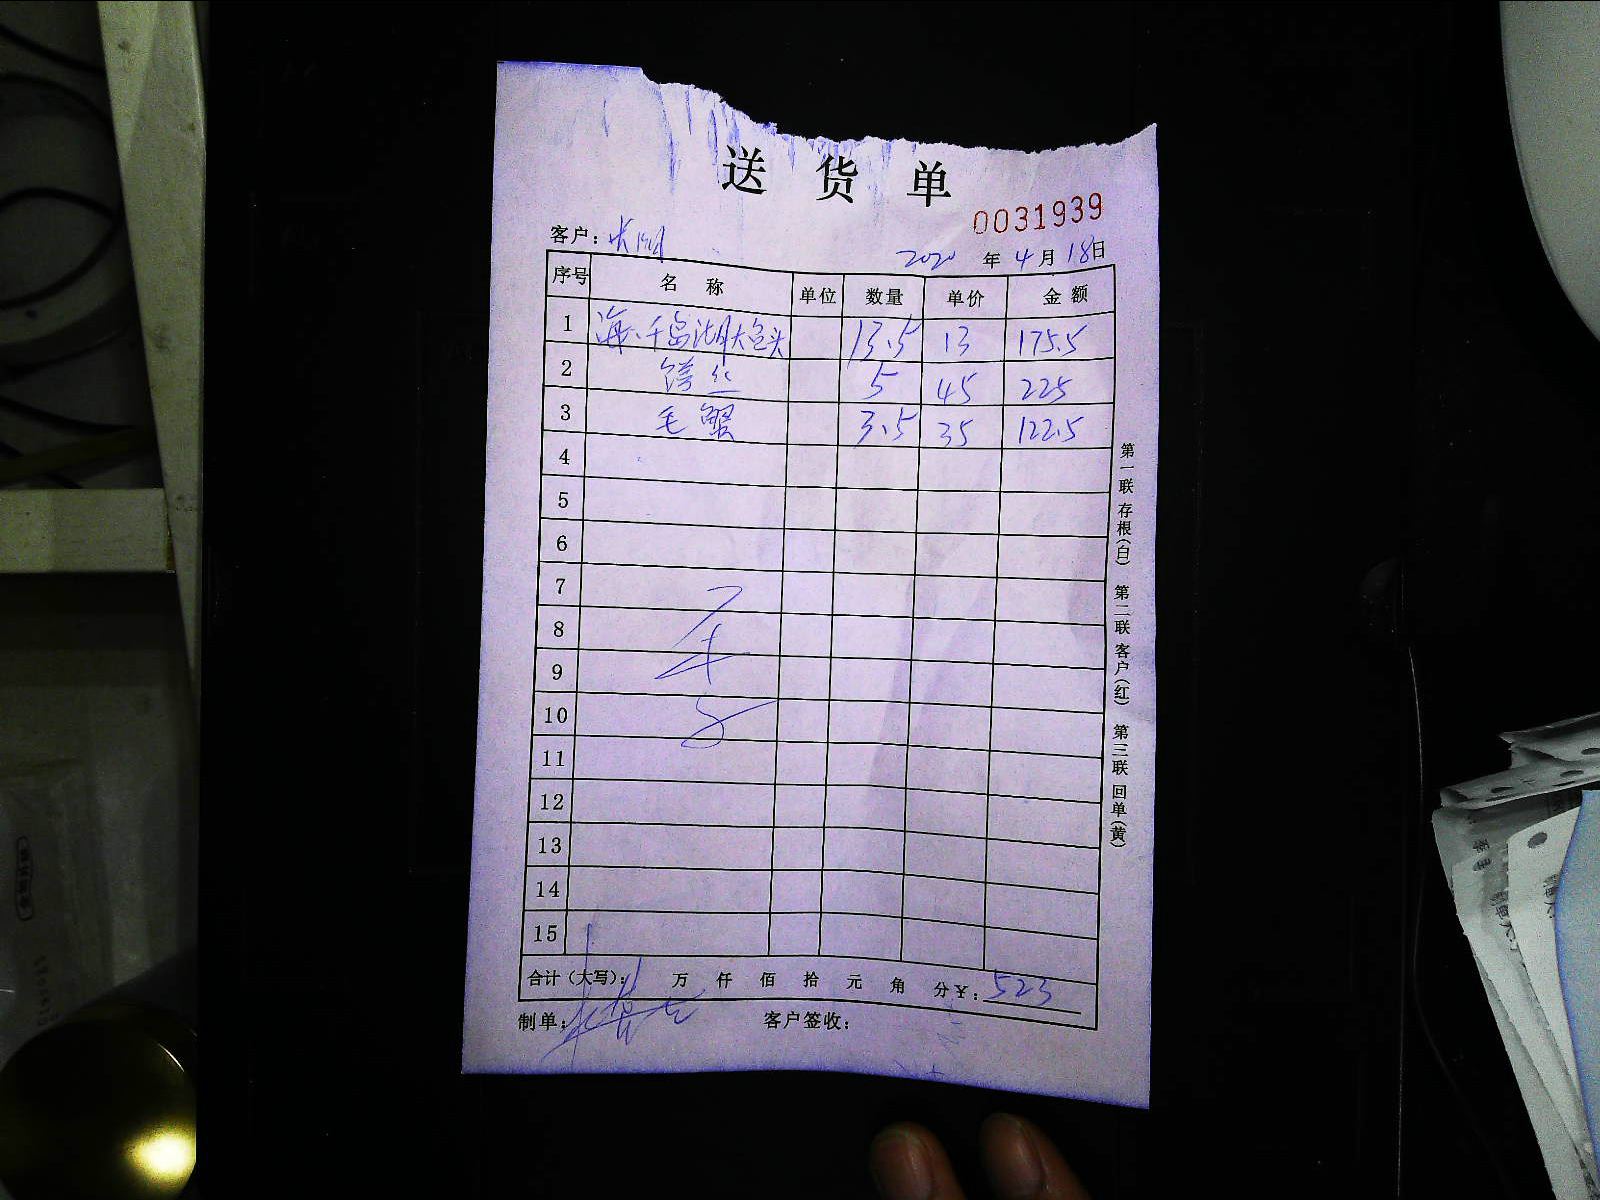 送货单
0031939
客户：
2020年4月18日
序号 名称 单位 数量 单价 金额
1 海、千岛湖大包头 13.5 13 175.5
2 5 45 225
3 毛蟹 3.5 35 122.5
4
5
6
7
8
9
10
11
12
13
14
15
合计（大写）： 万 仟 佰 拾 元 角 分 ¥：523
制单： 客户签收：
第一联 存根（白） 第二联 客户（红） 第三联 回单（黄）